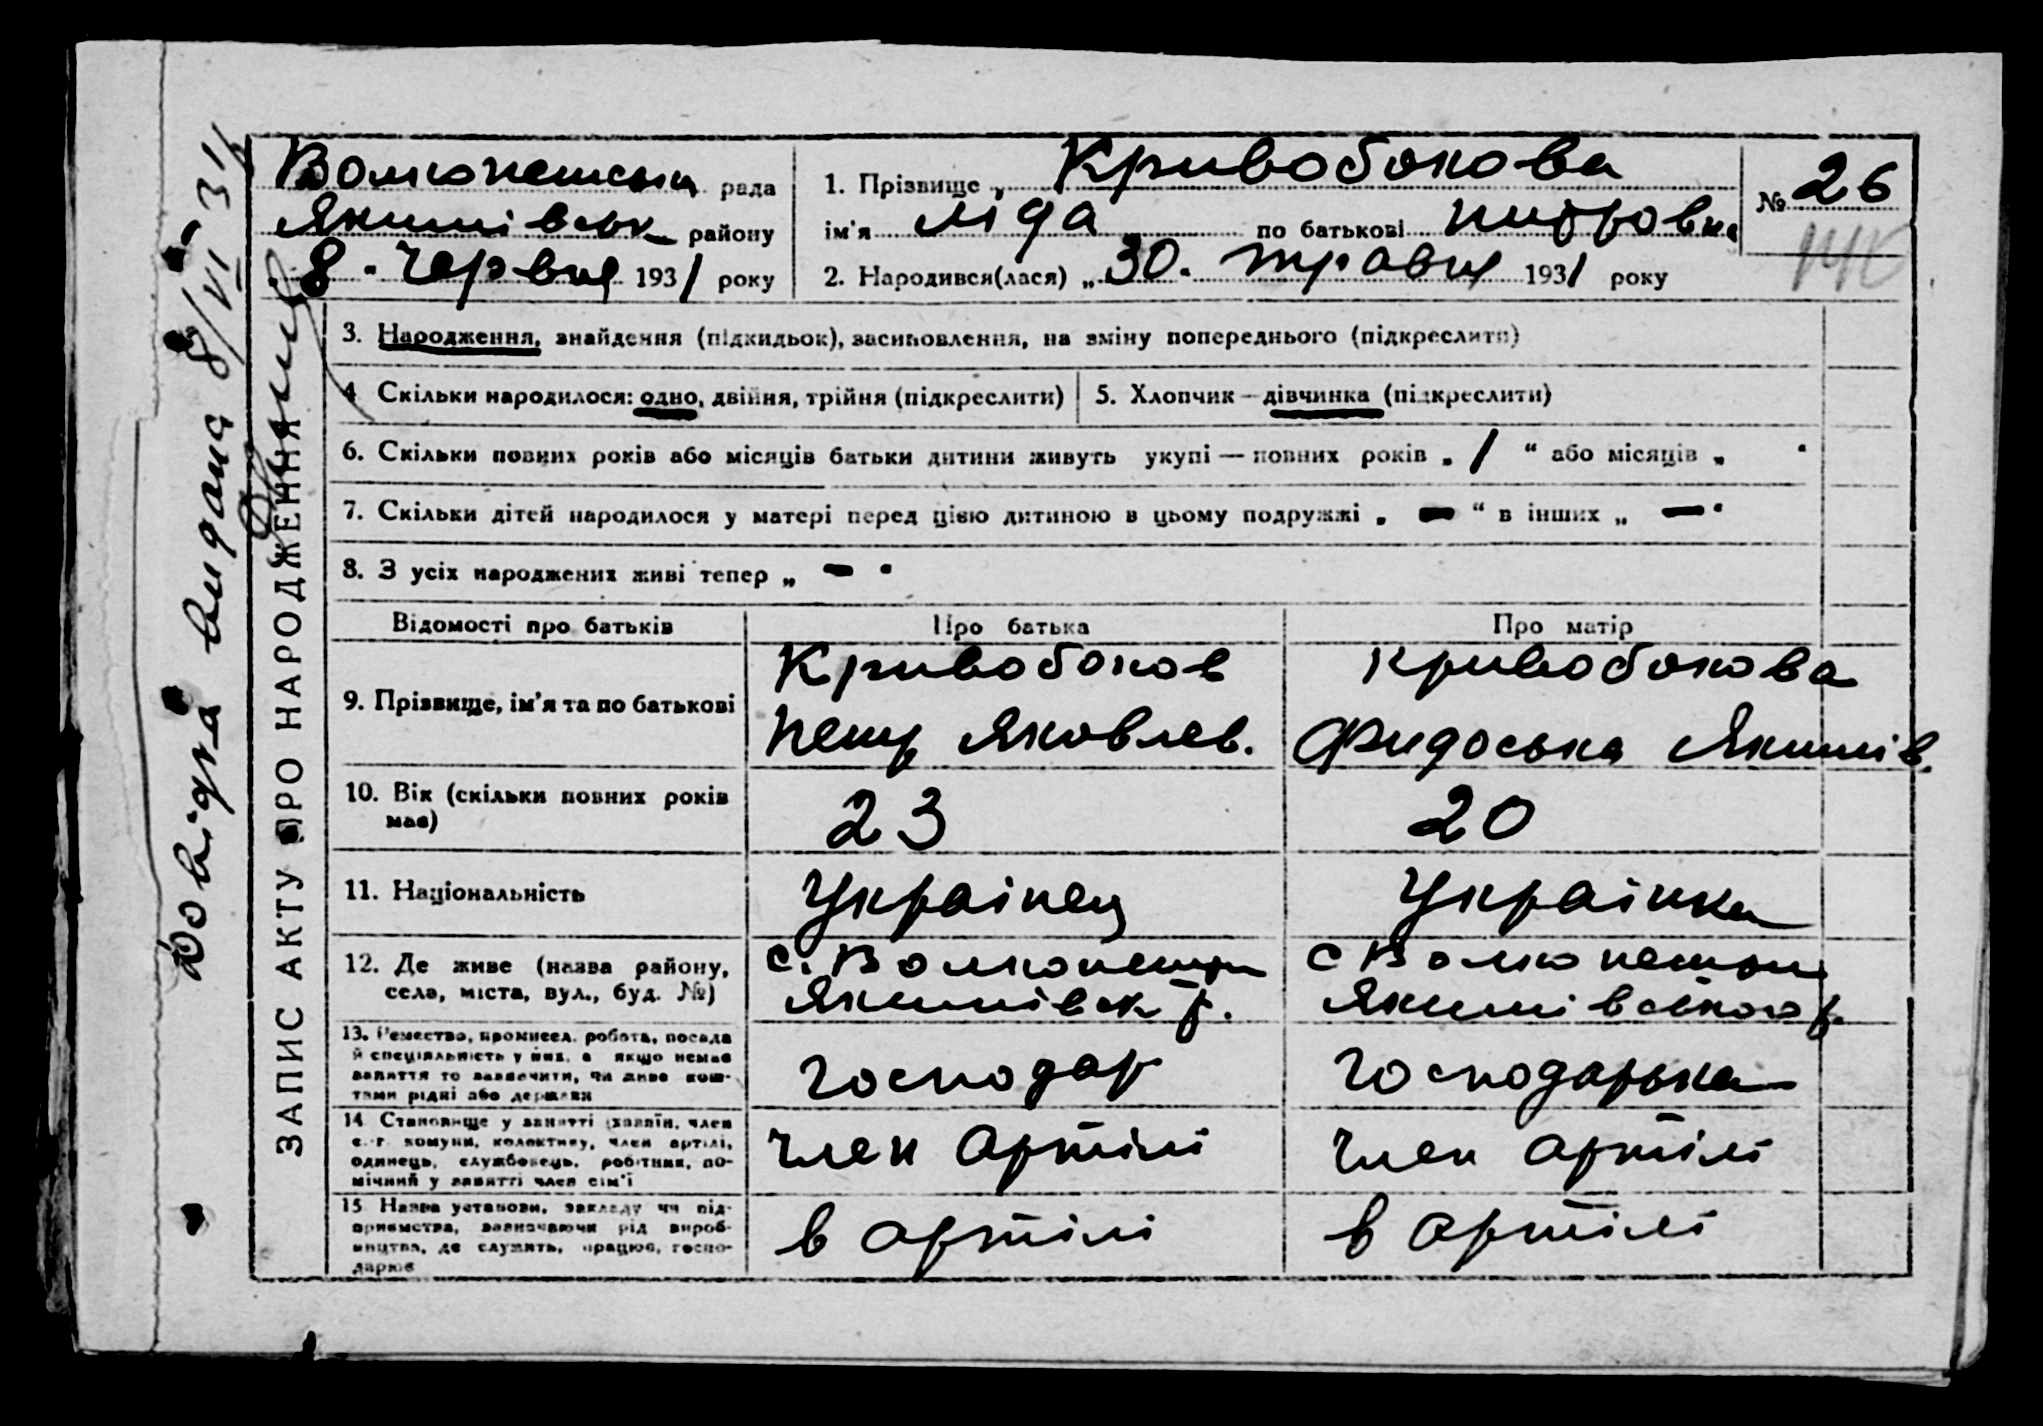 Довідка видана 8/VI 31
ЗАПИС АКТУ ПРО НАРОДЖЕННЯ
Волконешська рада
Якимівськ району
8. Червня 1931 року
1. Прізвище „ Кривобокова
ім'я Ліда по батькові Питровна
2. Народився(лася) „ 30. травня 1931 року
№ 26
3. Народження, знайдення (підкидьок), засиновлення, на зміну попереднього (підкреслити)
4 Скільки народилося: одно, двійня, трійня (підкреслити)
5. Хлопчик — дівчинка (підкреслити)
6. Скільки повних років або місяців батьки дитини живуть укупі — повних років „ 1 “ або місяців „ “
7. Скільки дітей народилося у матері перед цією дитиною в цьому подружжі „ — “ в інших „ — “
8. З усіх народжених живі тепер „ — “
Відомості про батьків
Про батька
Про матір
9. Прізвище, ім'я та по батькові
Кривобоков
Петр Яковлев.
Кривобокова
Фидоська Якимів.
10. Вік (скільки повних років
має)
23
20
11. Національність
Українец
Українка
12. Де живе (назва району,
села, міста, вул., буд. №)
с. Волконешти
Якимівск р.
с Волконешти
Якимівського р.
13. Ремество, промисел, робота, посада
й спеціяльність у них, а якщо немає
заняття то зазначити, чи живе кош-
тами рідні або держави
господар
господарька
14 Становище у занятті (хазяїн, член
с.-г. комуни, колективу, член артілі,
одинець, службовець, робітник, по-
мічний у занятті член сім'ї
член артілі
член артілі
15 Назва установи, закладу чи під-
приємства, зазначаючи рід вироб-
ництва, де служить, працює, госпо-
дарює
в артілі
в артілі